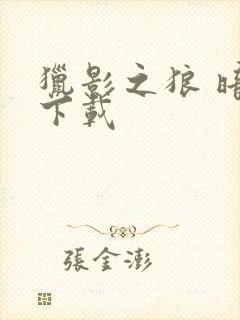 獵影之狼 暗
下載
張金澎